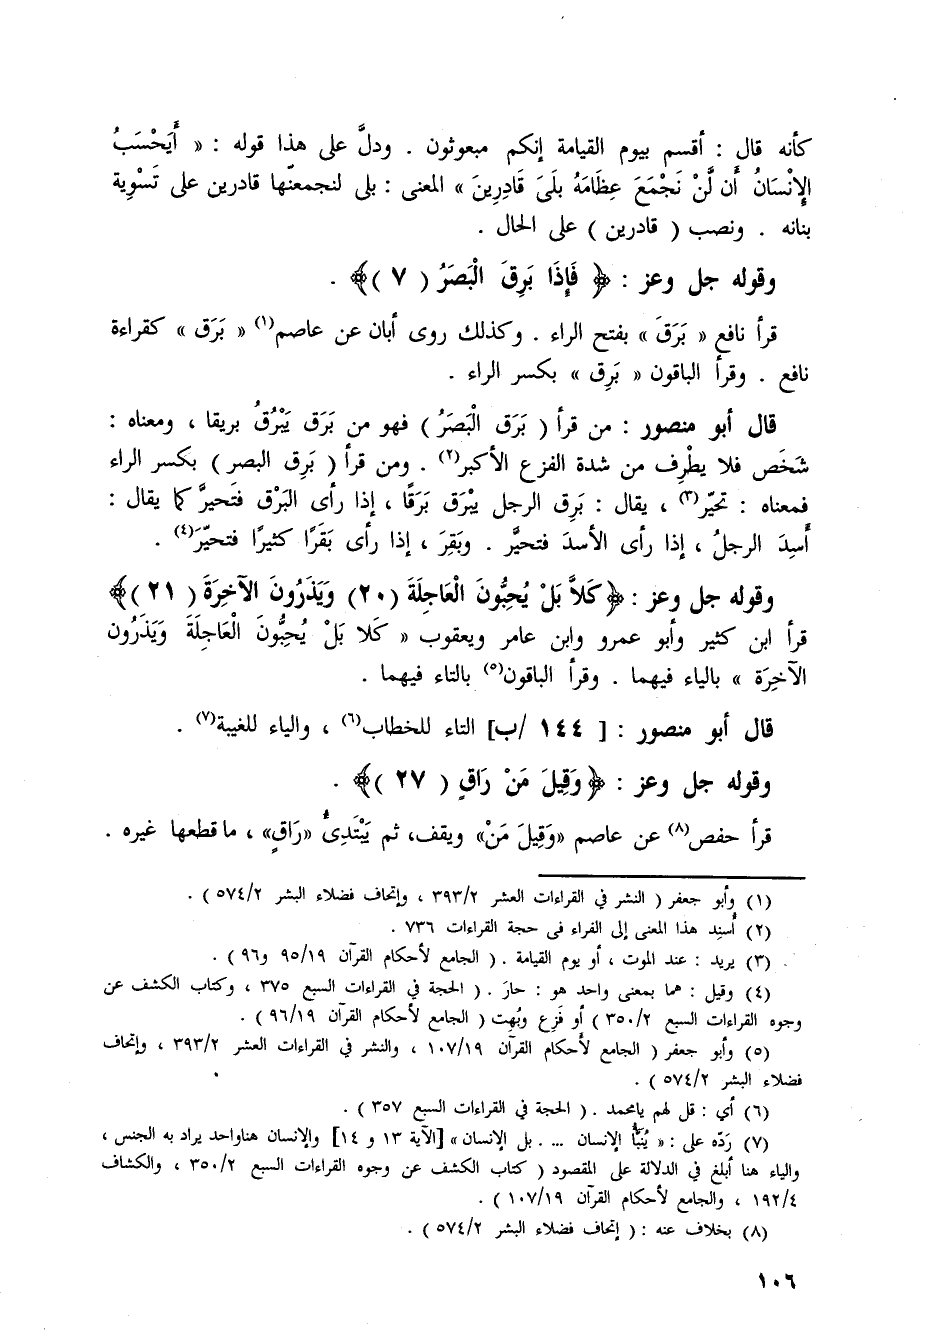 كأنه قال : أقسم بيوم القيامة إنكم مبعوثون . ودلَّ على هذا قوله : « أَيَحْسَبُ
الإِنْسَانُ أَن لَّنْ نَجْمَعَ عِظَامَهُ بَلَىَ قَادِرِينَ » المعنى : بلى لنجمعنّها قادرين على تَسْوِية
بنانه . ونصب ( قادرين ) على الحال .
وقوله جل وعز : ﴿ فَإِذَا بَرِقَ الْبَصَرُ ( ٧ )﴾ .
قرأ نافع « بَرَقَ » بفتح الراء . وكذلك روى أبان عن عاصم(١) « بَرَق » كقراءة
نافع . وقرأ الباقون « بَرِق » بكسر الراء .
قال أبو منصور : من قرأ ( بَرَق الْبَصَرُ ) فهو من بَرَق يَبْرُقُ بريقا ، ومعناه :
شَخَص فلا يطْرِف من شدة الفزع الأكبر(٢) . ومن قرأ ( بَرِق البصر ) بكسر الراء
فمعناه : تحيّر(٣) ، يقال : بَرِق الرجل يبْرَق بَرَقًا ، إذا رأى البَرْق فَتَحيرَّ كما يقال :
أَسِدَ الرجلُ ، إذا رأى الأسدَ فتحيَّر . وبَقِرَ ، إذا رأى بَقَرًا كثيرًا فتحيّرَ(٤) .
وقوله جل وعز : ﴿ كَلاَّ بَلْ يُحِبُّونَ الْعَاجِلَةَ (٢٠) وَيَذَرُونَ الآخِرَةَ ( ٢١ )﴾
قرأ ابن كثير وأبو عمرو وابن عامر ويعقوب « كَلا بَلْ يُحِبُّونَ الْعَاجِلَةَ وَيَذَرُون
الآخِرَة » بالياء فيهما . وقرأ الباقون(٥) بالتاء فيهما .
قال أبو منصور : [ ١٤٤ /ب] التاء للخطاب(٦) ، والياء للغيبة(٧) .
وقوله جل وعز : ﴿وَقِيلَ مَنْ رَاقٍ ( ٢٧ )﴾ .
قرأ حفص(٨) عن عاصم «وَقِيلَ مَنْ» ويقف، ثم يَبْتَدِىُ «رَاقٍ» ، ما قطعها غيره .
(١) وأبو جعفر ( النشر في القراءات العشر ٣٩٣/٢ ، وإتحاف فضلاء البشر ٥٧٤/٢ ) .
(٢) أُسنِد هذا المعنى إلى الفراء فى حجة القراءات ٧٣٦ .
(٣) يريد : عند الموت ، أو يوم القيامة . ( الجامع لأحكام القرآن ٩٥/١٩ و٩٦ ) .
(٤) وقيل : هما بمعنى واحد هو : حارَ . ( الحجة في القراءات السبع ٣٧٥ ، وكتاب الكشف عن
وجوه القراءات السبع ٣٥٠/٢ ) أو فَزِع وبُهِت ( الجامع لأحكام القرآن ٩٦/١٩ ) .
(٥) وأبو جعفر ( الجامع لأحكام القرآن ١٠٧/١٩ ، والنشر في القراءات العشر ٣٩٣/٢ ، وإتحاف
فضلاء البشر ٥٧٤/٢ ) .
(٦) أي : قل لهم يامحمد . ( الحجة في القراءات السبع ٣٥٧ ) .
(٧) رَدّه على : « يُنَبَّأُ الإنسان ... . بل الإنسان » [الآية ١٣ و ١٤] والإنسان هنا واحد يراد به الجنس ،
والياء هنا أبلغ في الدلالة على المقصود ( كتاب الكشف عن وجوه القراءات السبع ٣٥٠/٢ ، والكشاف
١٩٢/٤ ، والجامع لأحكام القرآن ١٠٧/١٩ ) .
(٨) بخلاف عنه : ( إتحاف فضلاء البشر ٥٧٤/٢ ) .
١٠٦